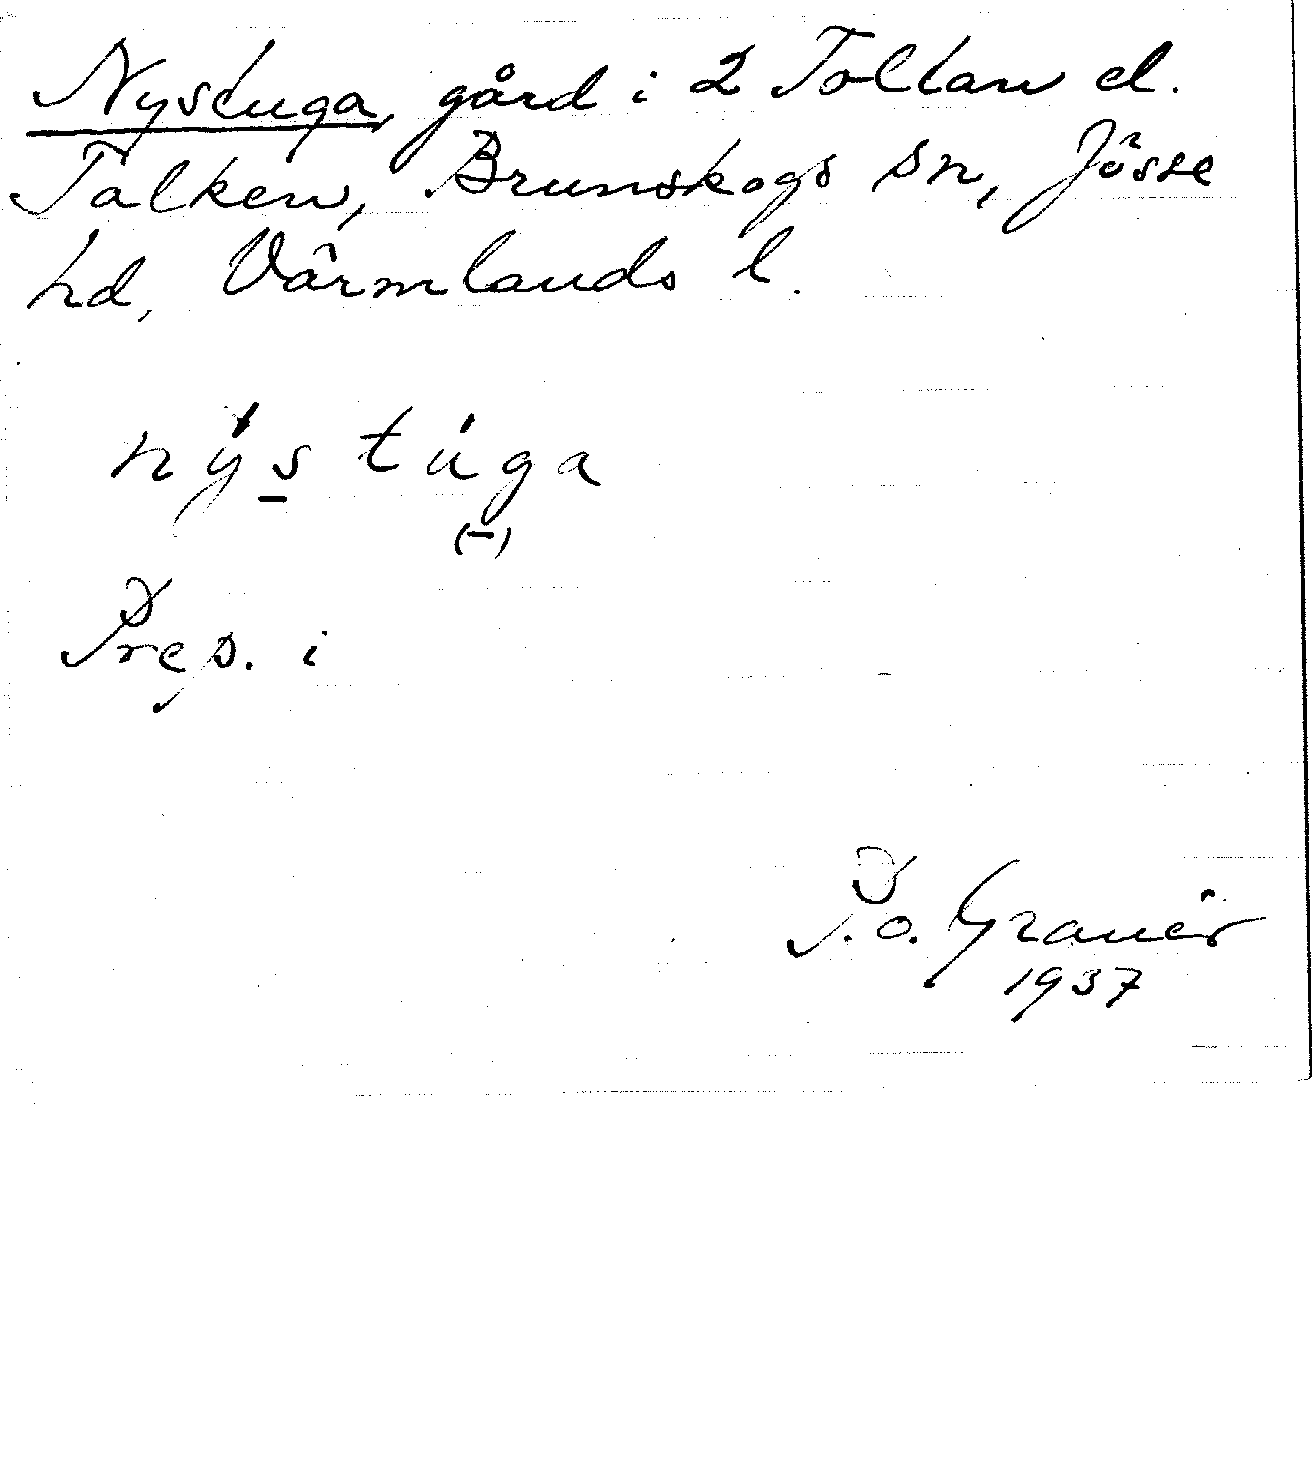 Nystuga, gård i 2 Toltan el.
Talken, Brunskogs sn, Jösse
hd, Värmlands l.
nýs túga
(-)
Prep. i
P.O. Granér
1937